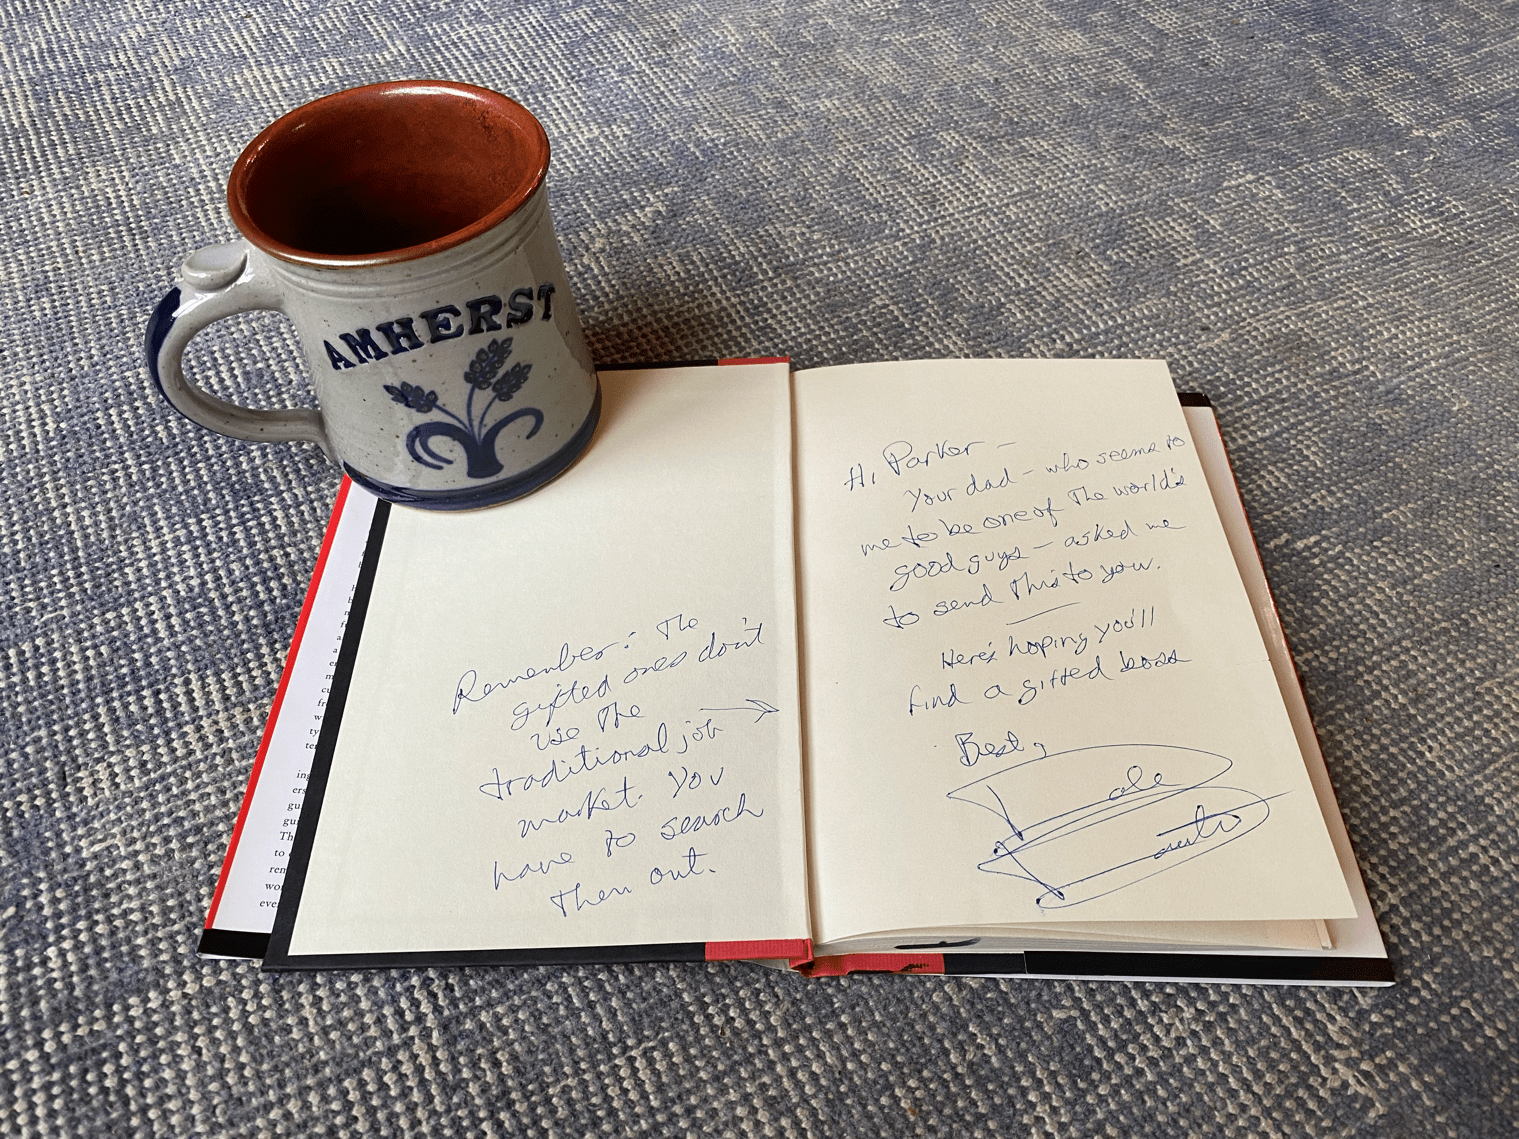 AMHERST
Remember: The
gifted ones don't
use the
traditional job
market. You
have to search
them out.
Hi Parker —
Your dad — who seems to
me to be one of the world's
good guys — asked me
to send this to you.
Here's hoping you'll
find a gifted boss
Best,
Dale